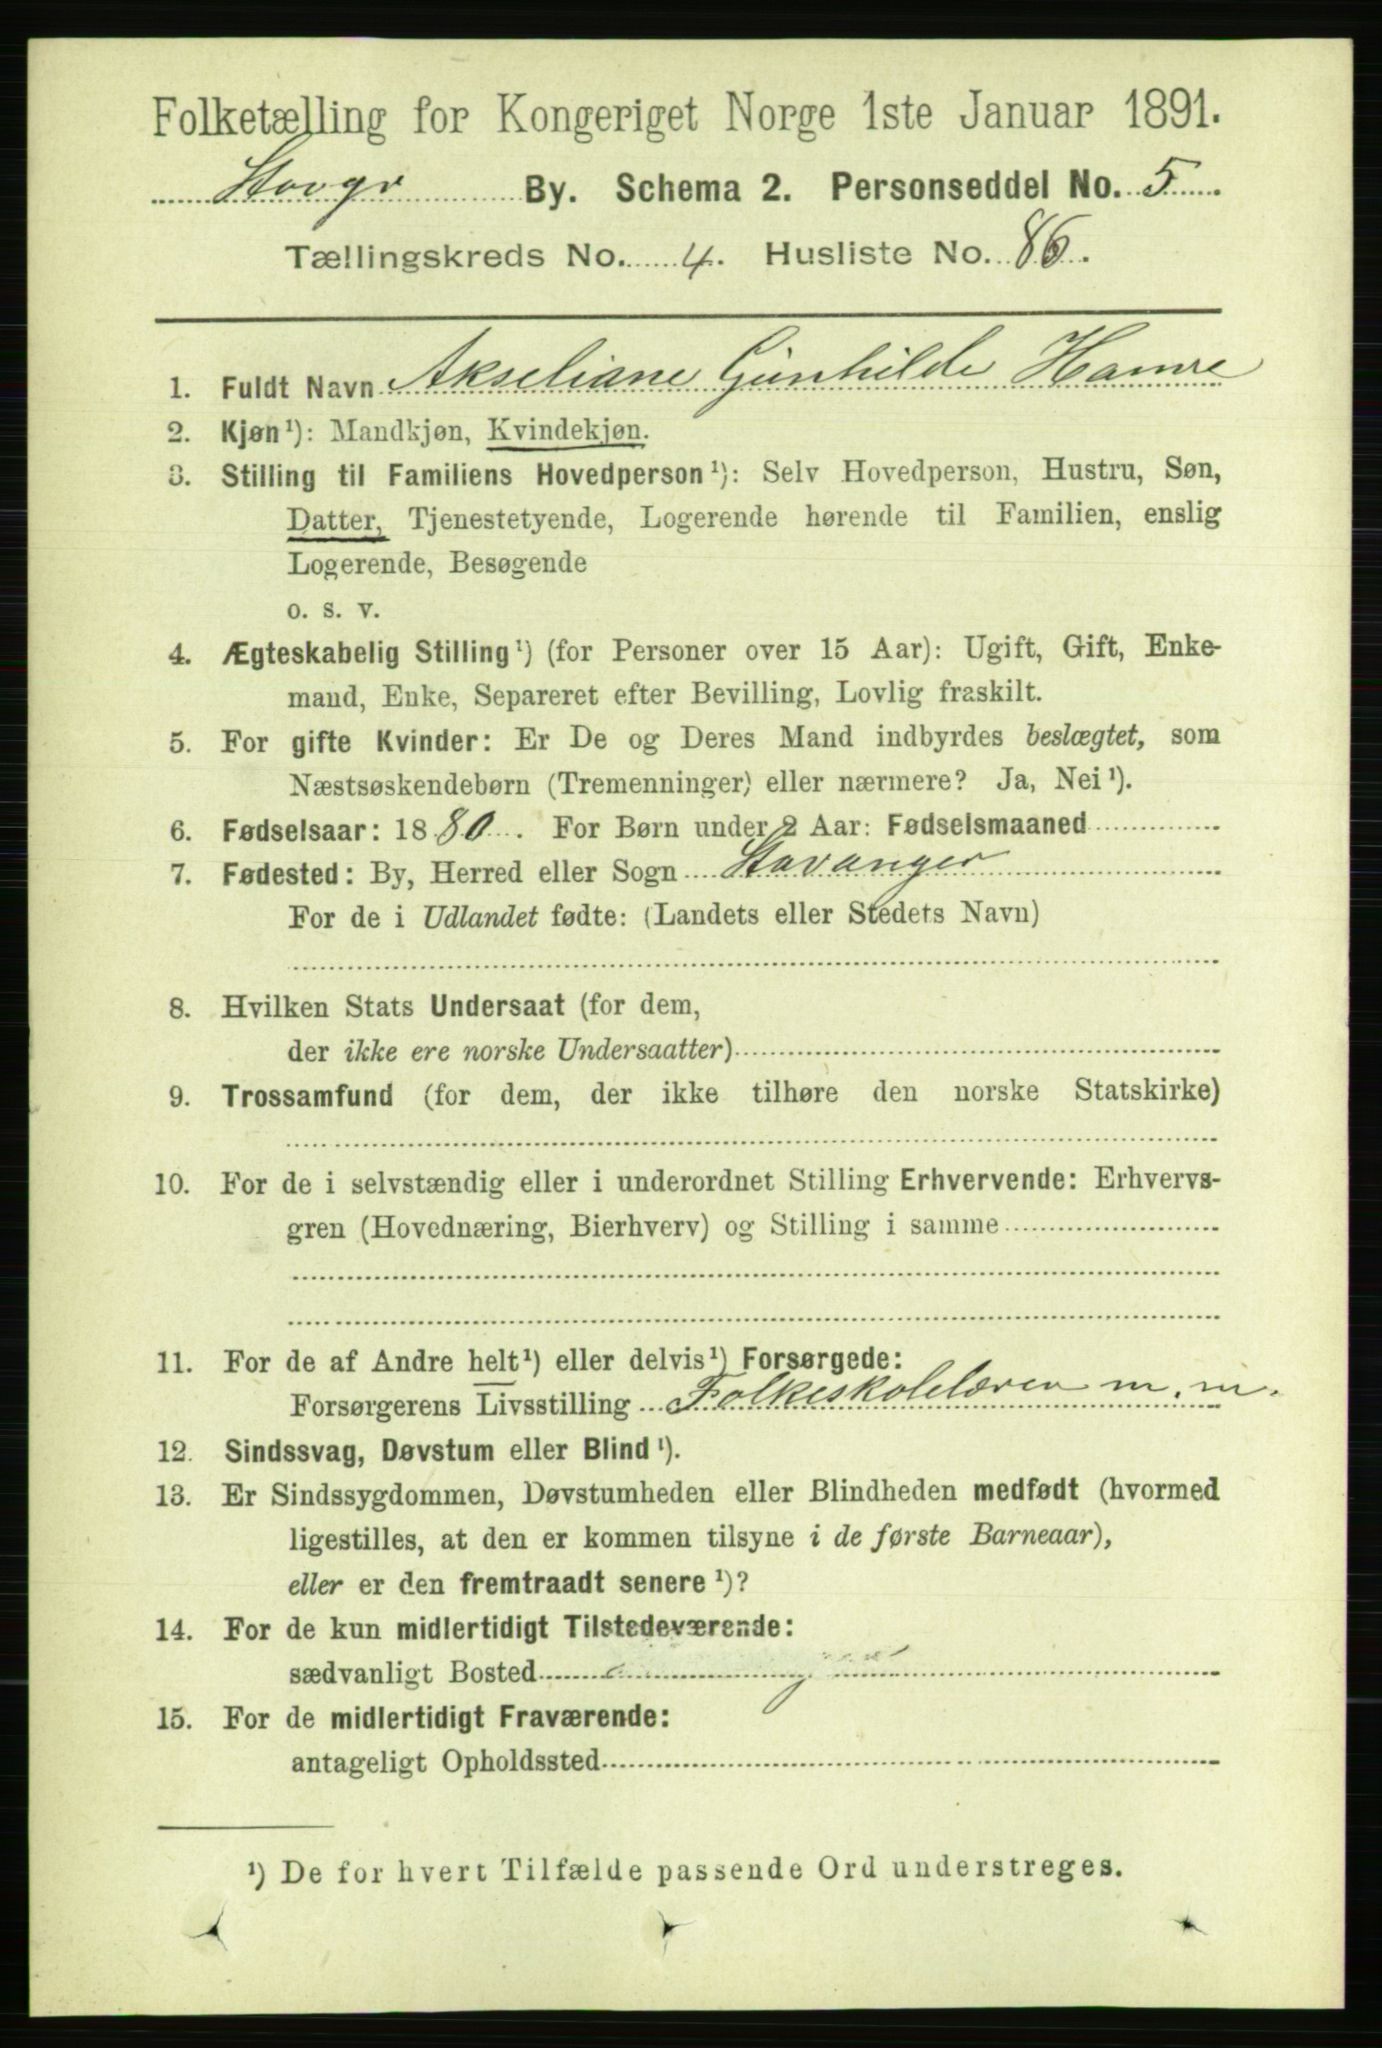 Folketælling for Kongeriget Norge 1ste Januar 1891.
Stavgr By. Schema 2. Personseddel No. 5.
Tællingskreds No. 4. Husliste No. 86.
1. Fuldt Navn Akseliane Gunhilde Hamre
2. Kjøn¹): Mandkjøn, Kvindekjøn.
3. Stilling til Familiens Hovedperson¹): Selv Hovedperson, Hustru, Søn,
Datter, Tjenestetyende, Logerende hørende til Familien, enslig
Logerende, Besøgende
o. s. v.
4. Ægteskabelig Stilling¹) (for Personer over 15 Aar): Ugift, Gift, Enke-
mand, Enke, Separeret efter Bevilling, Lovlig fraskilt.
5. For gifte Kvinder: Er De og Deres Mand indbyrdes beslægtet, som
Næstsøskendebørn (Tremenninger) eller nærmere? Ja, Nei¹).
6. Fødselsaar: 1880. For Børn under 2 Aar: Fødselsmaaned
7. Fødested: By, Herred eller Sogn Stavanger
For de i Udlandet fødte: (Landets eller Stedets Navn)
8. Hvilken Stats Undersaat (for dem,
der ikke ere norske Undersaatter)
9. Trossamfund (for dem, der ikke tilhøre den norske Statskirke)
10. For de i selvstændig eller i underordnet Stilling Erhvervende: Erhvervs-
gren (Hovednæring, Bierhverv) og Stilling i samme
11. For de af Andre helt¹) eller delvis¹) Forsørgede:
Forsørgerens Livsstilling Folkeskolelærer m. m.
12. Sindssvag, Døvstum eller Blind¹).
13. Er Sindssygdommen, Døvstumheden eller Blindheden medfødt (hvormed
ligestilles, at den er kommen tilsyne i de første Barneaar),
eller er den fremtraadt senere¹)?
14. For de kun midlertidigt Tilstedeværende:
sædvanligt Bosted
15. For de midlertidigt Fraværende:
antageligt Opholdssted
¹) De for hvert Tilfælde passende Ord understreges.